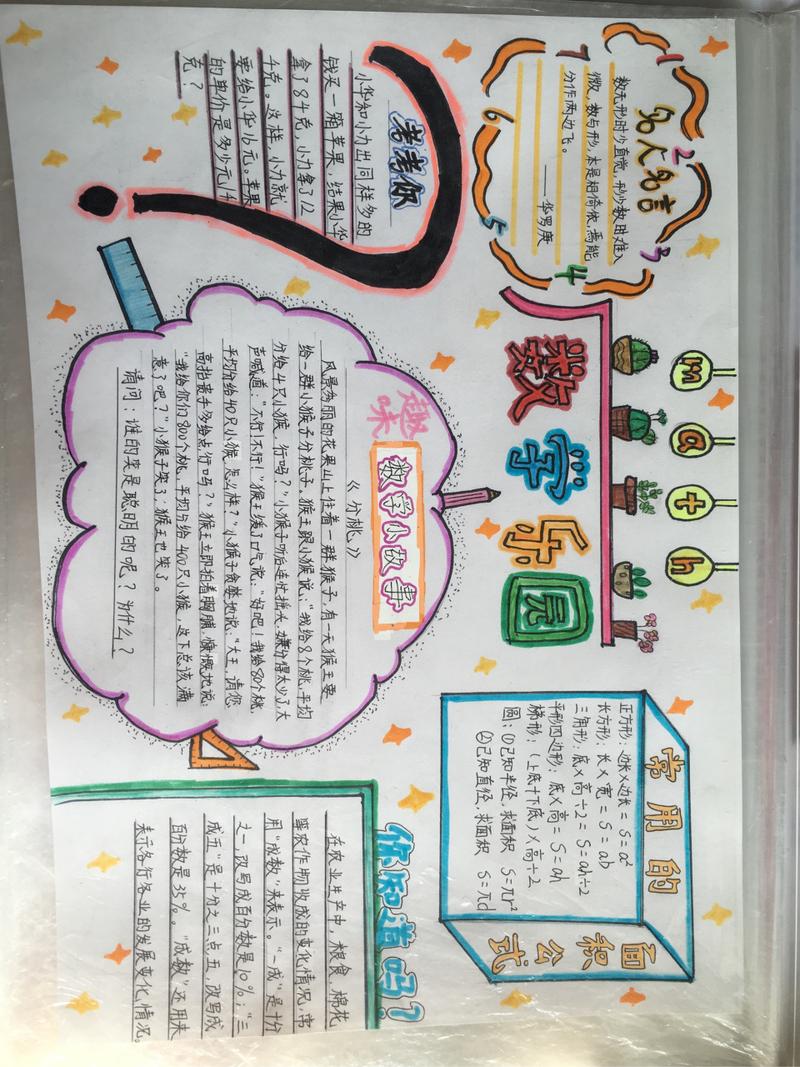 math
数学乐园
名人名言
数无形时少直觉，形少数时难入
微，数与形，本是相倚依，焉能
分作两边飞。
——华罗庚
1
2
3
4
5
6
7
考考你
小华和小力出同样多的
钱买一箱苹果，结果小华
拿了8千克，小力拿了12
千克。这样，小力就
要给小华16元。苹果
的单价是多少元/千
克？
趣味
数学小故事
《分桃》
风景秀丽的花果山上住着一群猴子，有一天猴王要
给一群小猴子分桃子。猴王跟小猴说：“我给8个桃，平均
分给4只小猴，行吗？”小猴子听后连忙摇头，嫌分得太少了，大
声喊道：“不行！不行！”猴王缓了口气说：“好吧！我给80个桃，
平均分给40只小猴，怎么样？”小猴子贪婪地说：“大王，请您
高抬贵手多给点行吗？”猴王立即拍着胸脯，慷慨地说：
“我给你们800个桃，平均分给400只小猴，这下总该满
意了吧？”小猴子笑了，猴王也笑了。
请问：谁的笑是聪明的呢？为什么？
常用的
面积公式
正方形：边长×边长 = S=a²
长方形：长×宽 = S=ab
三角形：底×高÷2 = S=ah÷2
平形四边形：底×高 = S=ah
梯形：（上底+下底）×高÷2
圆：①已知半径，求面积 S=πr²
②已知直径，求面积 S=πd
你知道吗？
在农业生产中，粮食、棉花
等农作物收成的变化情况，常
用“成数”来表示。“一成”是十分
之一，改写成百分数是10%；“三
成五”是十分之三点五，改写成
百分数是35%。“成数”还用来
表示各行各业的发展变化情况。